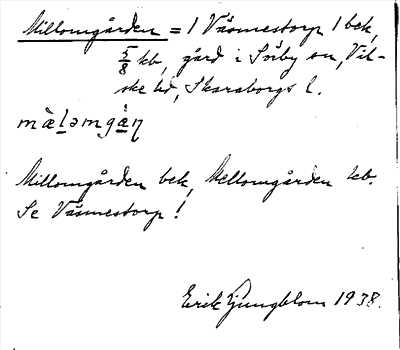 Millomgården = 1 Väsmestorp 1 bek,
5/8 kb, gård i Sörby sn, Vil-
ske hd, Skaraborgs l.
Millomgården bek, Mellomgården kb.
Se Väsmestorp!
Erik Ljungblom 1938.